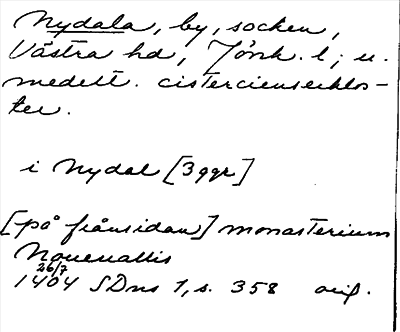 Nydala, by, socken,
Västra hd, Jönk. l; u.
medelt. cistercienserklos-
ter.
i Nydal [3 ggr]
[på frånsidan] monasterium
Nouevallis
26/7
1404 SDns 1, s. 358 orig.